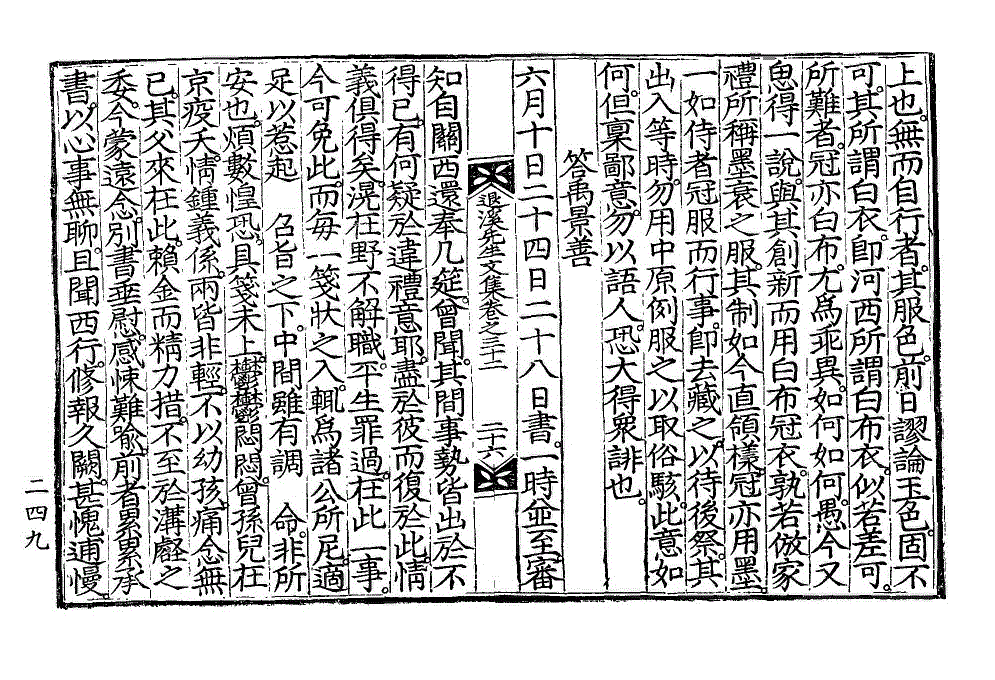 上也。無而自行者。其服色。前日謬論玉色。固不
可。其所謂白衣。卽河西所謂白布衣。似若差可。
所難者。冠亦白布。尤爲乖異。如何如何。愚今又
思得一說。與其創新而用白布冠衣。孰若倣家
禮所稱墨衰之服。其制如今直領樣。冠亦用墨。
一如侍者冠服而行事。卽去藏之。以待後祭。其
出入等時。勿用中原例服之。以取俗駭。此意如
何。但稟鄙意。勿以語人。恐大得衆誹也。
答禹景善
六月十日二十四日二十八日書。一時並至。審
退溪先生文集卷之三十二 二十六
知自關西還奉几筵。曾聞。其間事勢皆出於不
得已。有何疑於違禮意耶。盡於彼而復於此。情
義俱得矣。滉在野不解職。平生罪過。在此一事。
今可免此。而每一箋狀之入。輒爲諸公所尼。適
足以惹起 召旨之下。中間雖有調 命。非所
安也。煩數惶恐。具箋未上。鬱鬱悶悶。曾孫兒在
京疫夭。情鍾義係。兩皆非輕。不以幼孩。痛念無
已。其父來在此。賴金而精力措。不至於溝壑之
委。今蒙遠念。別書垂慰。感悚難喩。前者累累承
書。以心事無聊。且聞西行。修報久闕。甚愧逋慢
二四九